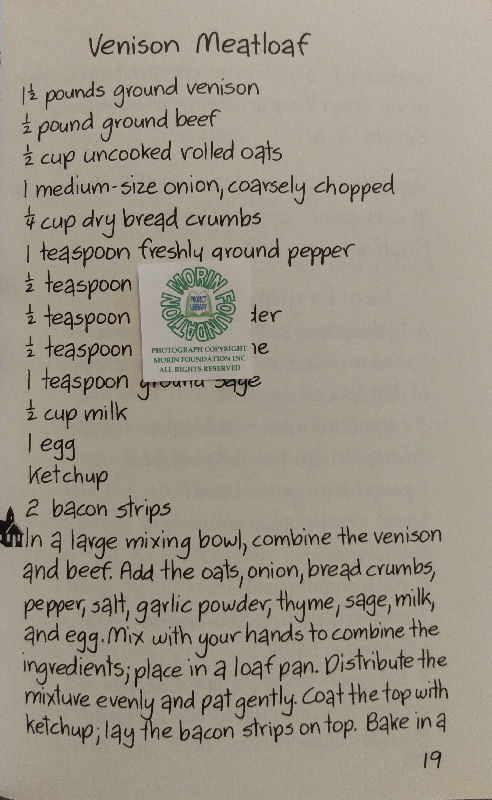 Venison Meatloaf
1½ pounds ground venison
½ pound ground beef
½ cup uncooked rolled oats
1 medium-size onion, coarsely chopped
¼ cup dry bread crumbs
1 teaspoon freshly ground pepper
½ teaspoon
½ teaspoon der
½ teaspoon me
1 teaspoon ground sage
½ cup milk
1 egg
Ketchup
2 bacon strips
In a large mixing bowl, combine the venison
and beef. Add the oats, onion, bread crumbs,
pepper, salt, garlic powder, thyme, sage, milk,
and egg. Mix with your hands to combine the
ingredients; place in a loaf pan. Distribute the
mixture evenly and pat gently. Coat the top with
ketchup; lay the bacon strips on top. Bake in a
19
MORIN FOUNDATION
PROJECT
LIBRARY
PHOTOGRAPH COPYRIGHT
MORIN FOUNDATION INC
ALL RIGHTS RESERVED